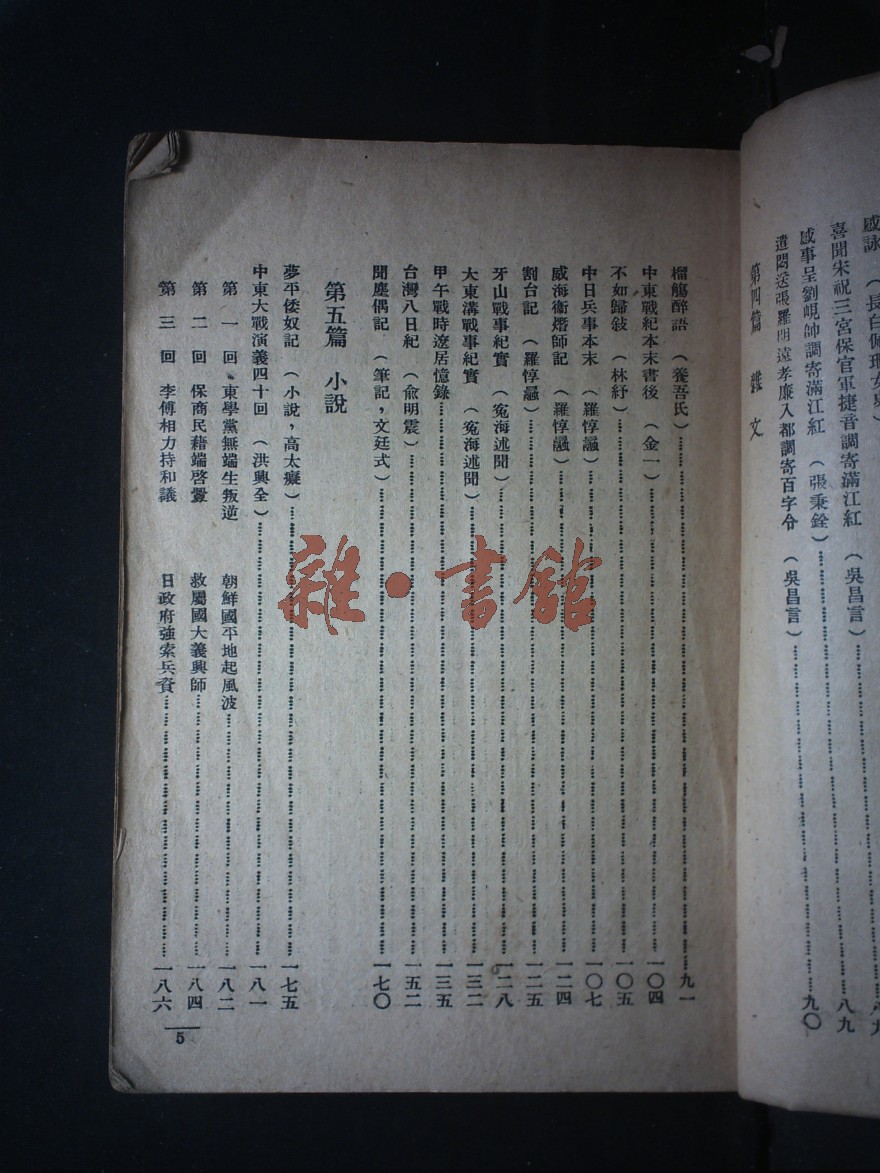 喜聞宋祝三宮保官軍捷音調寄滿江紅（吳昌言）八九
感事呈劉峴帥調寄滿江紅（張秉銓）九〇
遣悶送張羅明遠孝廉入都調寄百字令（吳昌言）
第四篇 雜文
榴觴醉語（養吾氏）九一
中東戰紀本末書後（金一）一〇四
不如歸敍（林紓）一〇五
中日兵事本末（羅惇曧）一〇七
威海衞熸師記（羅惇曧）一二四
割台記（羅惇曧）一二五
牙山戰事紀實（寃海述聞）一二八
大東溝戰事紀實（寃海述聞）一三二
甲午戰時遼居憶錄一三五
台灣八日紀（俞明震）一五二
聞塵偶記（筆記，文廷式）一七〇
第五篇 小說
夢平倭奴記（小說，高太癡）一七五
中東大戰演義四十回（洪興全）一八一
第一回 東學黨無端生叛逆 朝鮮國平地起風波一八二
第二回 保商民藉端啓釁 救屬國大義興師一八四
第三回 李傅相力持和議 日政府強索兵資一八六
5
雜·書館